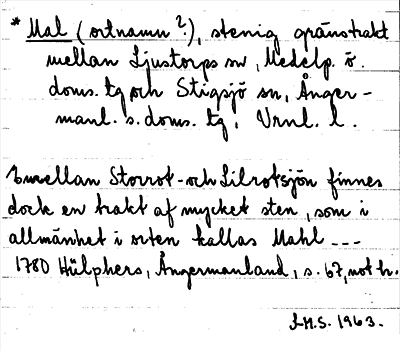 * Mal (ortnamn?), stenig gränstrakt
mellan Ljustorps sn, Medelp. ö.
doms. tg och Stigsjö sn, Ånger-
manl. s. doms. tg, Vrnl. l.
Emellan Storrot- och Lilrotsjön finnes
dock en trakt af mycket sten, som i
allmänhet i orten kallas Mahl ---
1780 Hülphers, Ångermanland, s. 67, not h.
L.H.S. 1963.